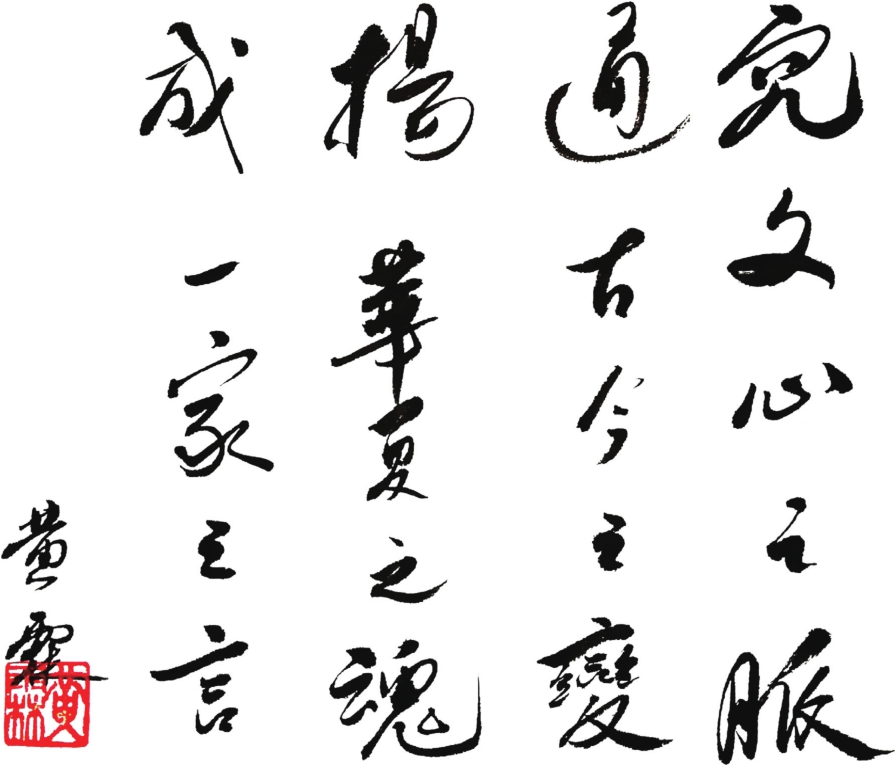 究文心之脈
通古今之變
揚華夏之魂
成一家之言
黄霖
黄霖